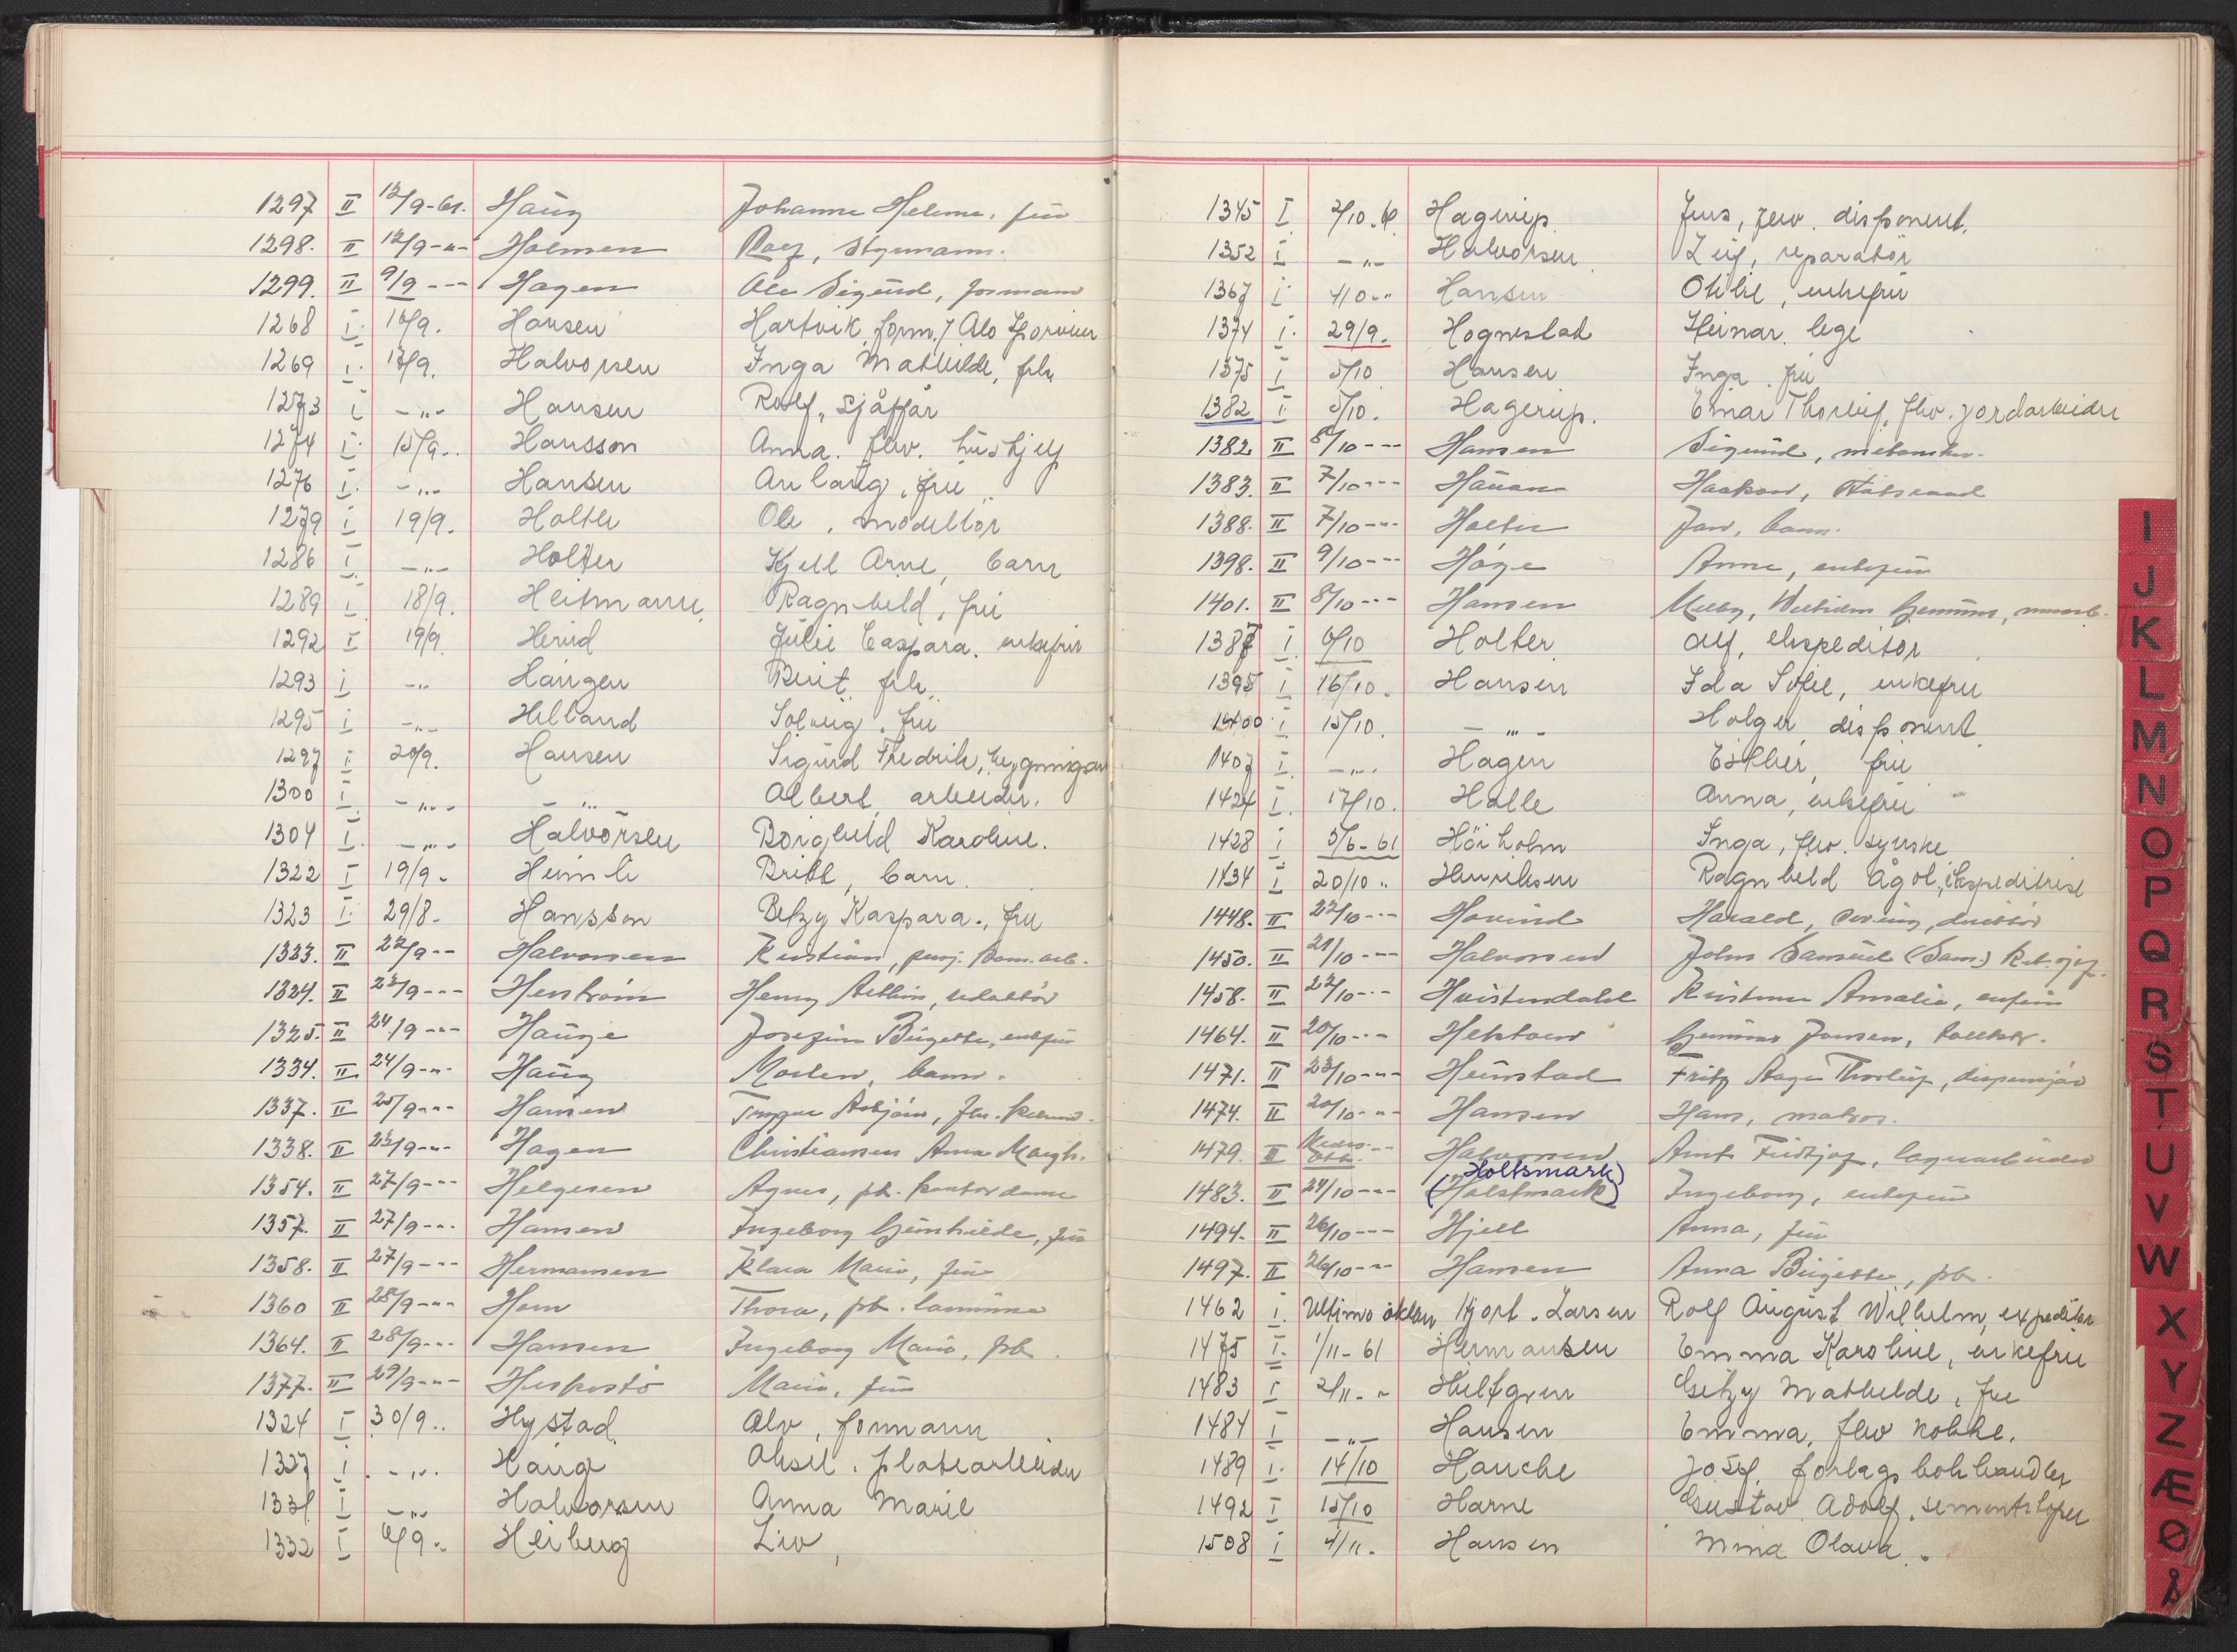 1297 II 12/9-61. Haug Johanne Helene, fru
1298. II 12/9-"- Holmen Rolf, styrmann.
1299. II 9/9 --- Hagen Ole Sigurd, formann
1268 I. 16/9. Hansen Hartvik, form.
1269 I. 13/9. Halvorsen Inga Mathilde, frk.
1273 I -"- Hansen Rolf, sjåffør
1274 I. 15/9.. Hansson Anna. fhv. hushjelp
1276 I. -"- Hansen Anlaug, fru
1279 I 19/9. Holth Ole, modellør
1286 I -"- Holter Kjell Arne, barn
1289 I 18/9. Heitmann, Ragnhild, fru
1292 I 19/9. Herud Julie Caspara. enkefru
1293 I -"- Haugen Berit, frk.
1295 I -"- Helland Solveig, fru
1297 I 20/9. Hansen Sigurd Fredrik,
1300 I. -"- -"- Albert, arbeider.
1304 I. -"- Halvorsen Borghild Karoline.
1322 I 19/9. Heimli Britt, barn.
1323 I. 29/8. Hansson Betzy Kaspara., fru
1323. II 22/9-- Halvorsen Kristian, pensj.
1324. II 23/9--- Henström Henry redaktør
1325. II 24/9--- Hauge Josefine Birgitte, enkefru
1334. II 24/9-"- Haug Morten, barn.
1337. II 25/9--- Hansen Asbjørn,
1338. II 23/9-"- Hagen Christiansen Anna Margh.
1354. II 27/9--- Helgesen Agnes, frk. kontordame
1357. II 27/9--- Hansen Ingeborg Gunhilde, fru
1358. II 27/9--- Hermansen Klara Marie, fru
1360 II 28/9--- Horn Thora, frk.
1364. II 28/9--- Hansen Ingeborg Marie, frk.
1377. II 29/9-"- Marie, fru
1324 I 30/9.. Hystad Alv, formann
1327 I. -"- Haug Aksel. platearbeider
1331 I -"- Halvorsen Anna Marie
1332 I 6/9.. Heiberg Liv,
1345 I 2/10.61. Hagerup Jens, disponent.
1352 I -"- Halvorsen Leif, reparatør
1367 I 4/10.." Hansen Otilie, enkefru
1374 I. 29/9. Hognestad Heinar, lege
1375 I 5/10 Hansen Inga. fru
1382 I 5/10. Hagerup. Einar Thorleif, fhv. jordarbeider
1382 II 8/10--- Hansen Sigurd,
1383. II 7/10--- Hauan Haakon,
1388. II 7/10-"- Holter Jan, barn.
1398. II 9/10--- Høge Anne, enkefru
1401. II 8/10--- Hansen
1387 I. 6/10 Holter Alf, ekspeditør
1395 I 16/10. Hansen Ida Sofie, enkefru
1400 I 15/10. -"- Holger disponent
1407 I. -"- Hagen Esther, fru
1424 I. 17/10. Halle Anna, enkefru
1428 I 5/6-61 Höiholm Inga, fhv. syerske
1434 I 20/10.. Henriksen Ragnhild Ågot, ekspeditrise
1448. II 22/10--- Hovind Harald,
1450. II 21/10--- Halvorsen John Samuel (Sam)
1458. II 22/10--- Hvistendahl Kristine Amalie, enkefru
1464. II 20/10--- Hektoen Gunnar Jonsen,
1471. II 23/10-"- Heinstad Fritz Aage Thorleif,
1474. II 20/10-"- Hansen Hans, matros.
1479. II Halvorsen Arnt Fridtjof, lagerarbeider
Holtsmark
1483. II 24/10--- (Holstmark) Ingeborg, enkefru
1494. II 26/10--- Hjell Anna, fru
1497. II 26/10--- Hansen Anna Birgitte, frk.
1462 I. Ultimo oktbr. Hjort-Larsen Rolf August Wilhelm, expeditør
1475 I. 1/11-61 Hermansen Emma Karoline, enkefru
1483 I 2/11-" Hultgren Getzy Mathilde, fru
1484 I -"- Hansen Emma, fhv kokke.
1489 I. 14/10 Hauche Josef, forlagsbokhandler
1492 I 15/10 Harne Gustav Adolf, sementstøper
1508 I 4/11. Hansen Nina Olava.
I
J
K
L
M
N
O
P
Q
R
S
T
U
V
W
X
Y
Z
Æ
Ø
Å